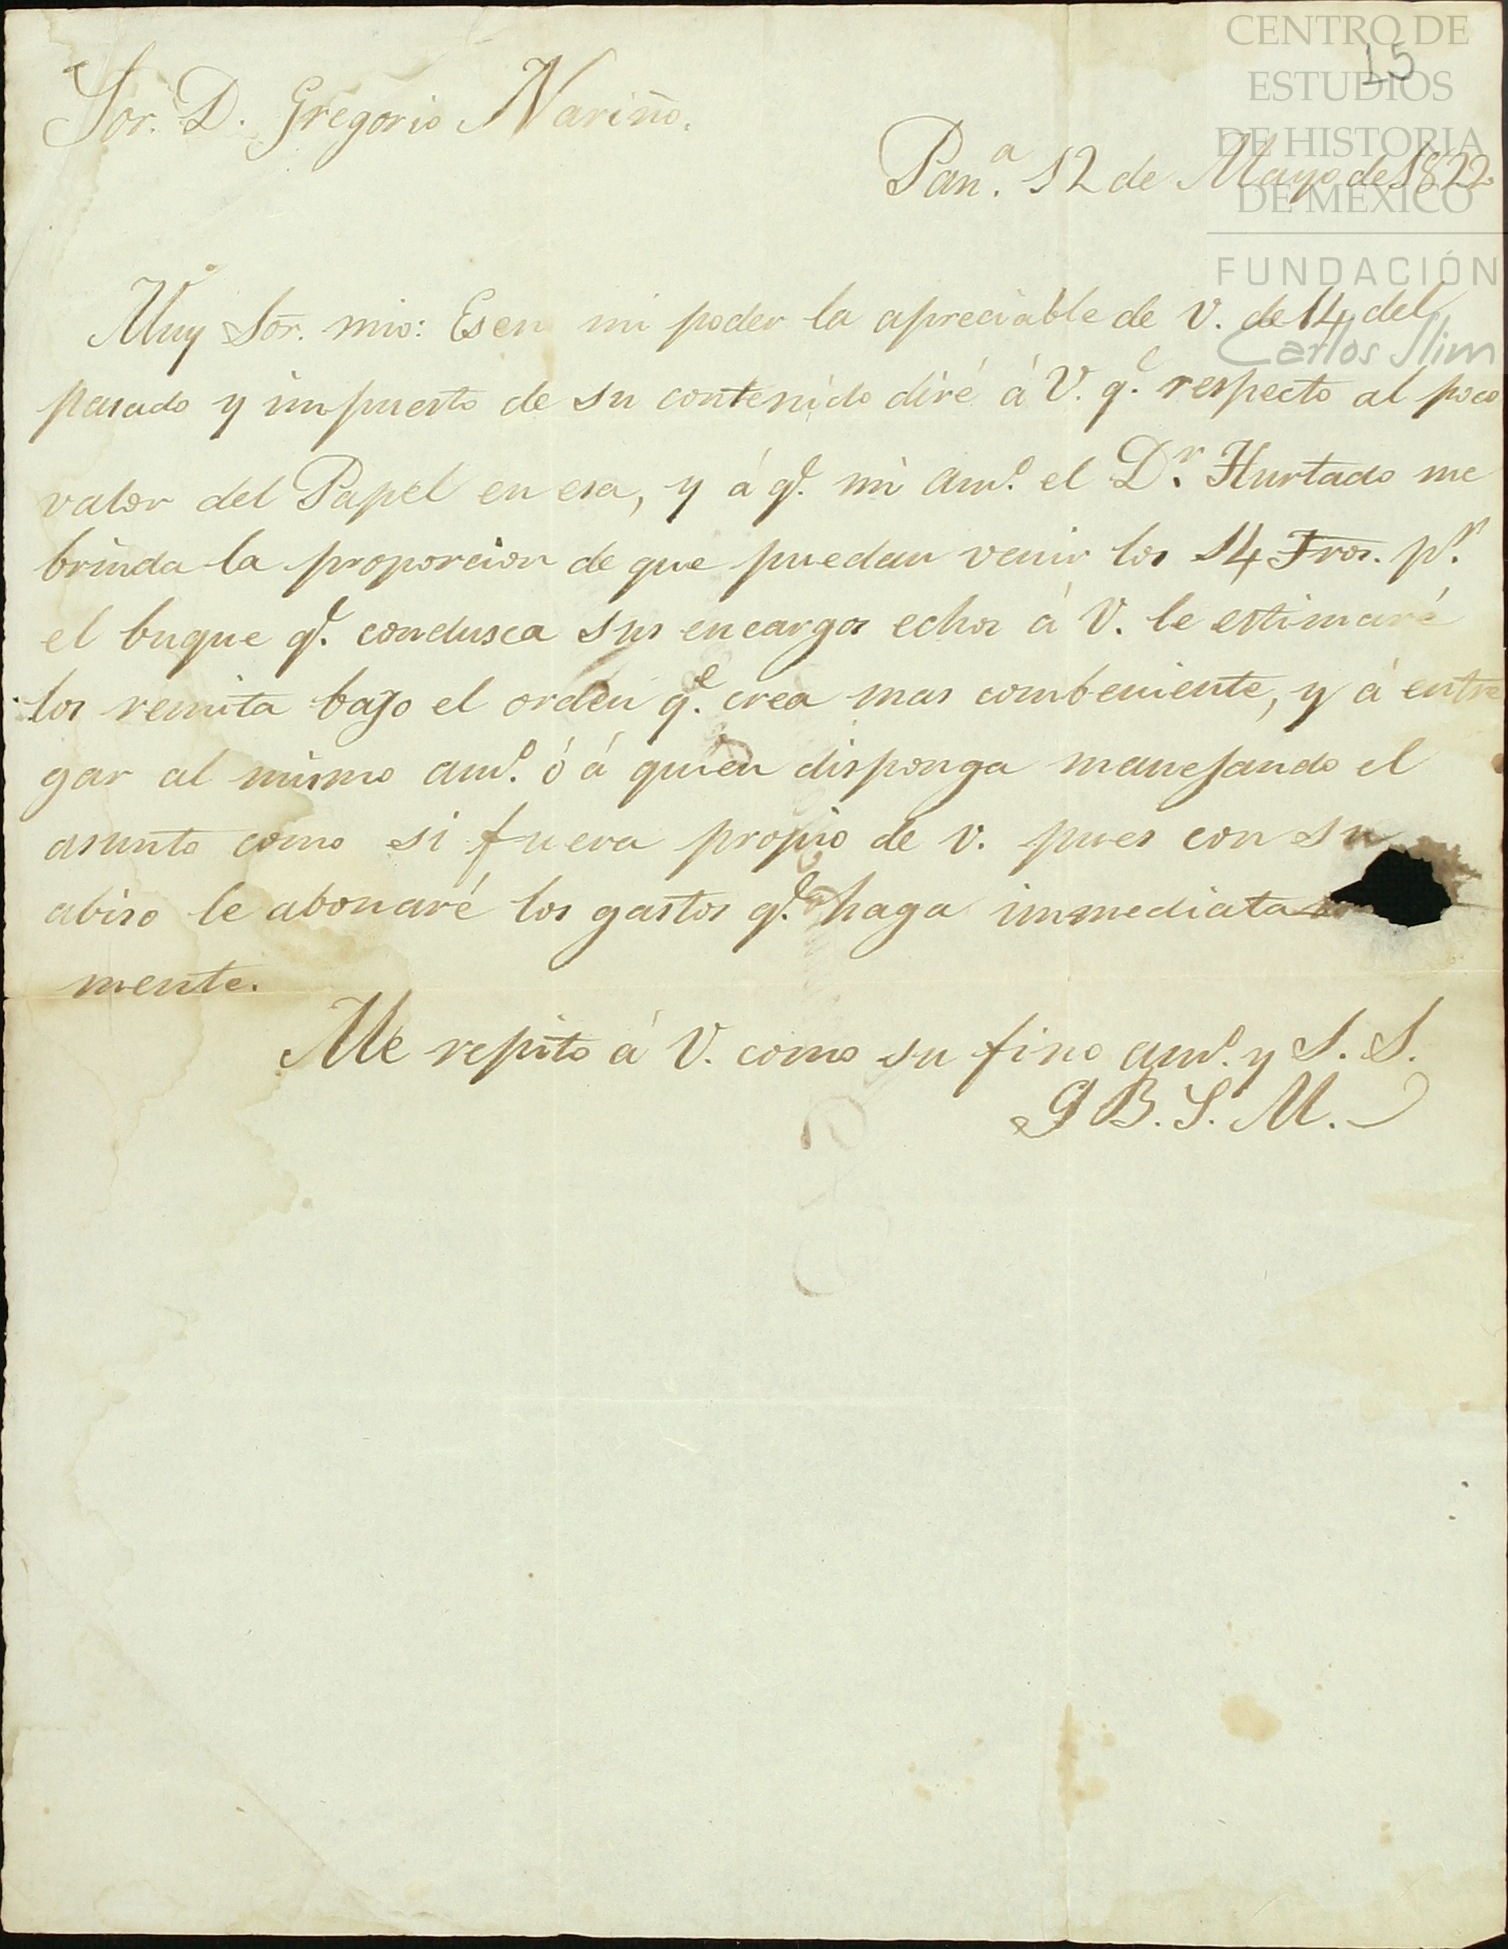 CENTRO DE
ESTUDIOS
DE HISTORIA
DE MÉXICO
FUNDACIÓN
Carlos Slim
15
Sor. D. Gregorio Nariño.
Pan.a 12 de Mayo de 1822
Muy Sor. mio: Es en mi poder la apreciable de V. de 14 del
pasado y impuesto de su contenido diré á V. q.e respecto al poco
valor del Papel en esa, y á q.e mi am.o el D.r Hurtado me
brinda la proporcion de que puedan venir los 14 Fros. p.r
el buque q.e condusca sus encargos echos á V. le estimaré
los remita bajo el orden q.e crea mas combeniente, y á entre
gar al mismo am.o ó á quien disponga manejando el
asunto como si fuera propio de V. pues con su
abiso le abonaré los gastos q.e haga immediata
mente.
Me repito á V. como su fino am.o y S. S.
Q B. S. M.